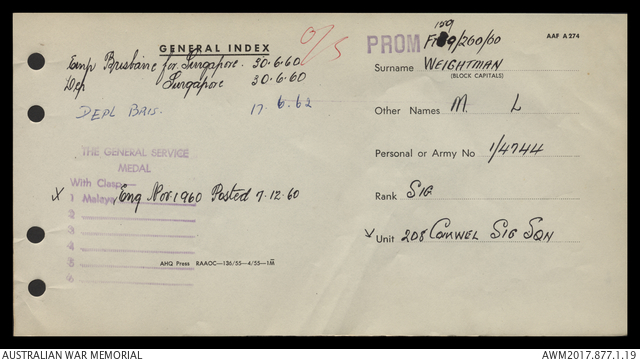 GENERAL INDEX
O/S
Emp Brisbane for Singapore. 30.6.60
Dep Singapore 30.6.60
DEPL BRIS. 17.6.62
THE GENERAL SERVICE
MEDAL
With Clasp—
1 Malaya
2
3
4
5
6
X Enq Nov. 1960 Posted 7.12.60
AHQ Press RAAOC—136/55—4/55—1M
PROM
159
AAF A 274
Surname WEIGHTMAN
(BLOCK CAPITALS)
Other Names M. L
Personal or Army No 1/4744
Rank SIG
X Unit 208 COMWEL SIG SQN
AUSTRALIAN WAR MEMORIAL
AWM2017.877.1.19